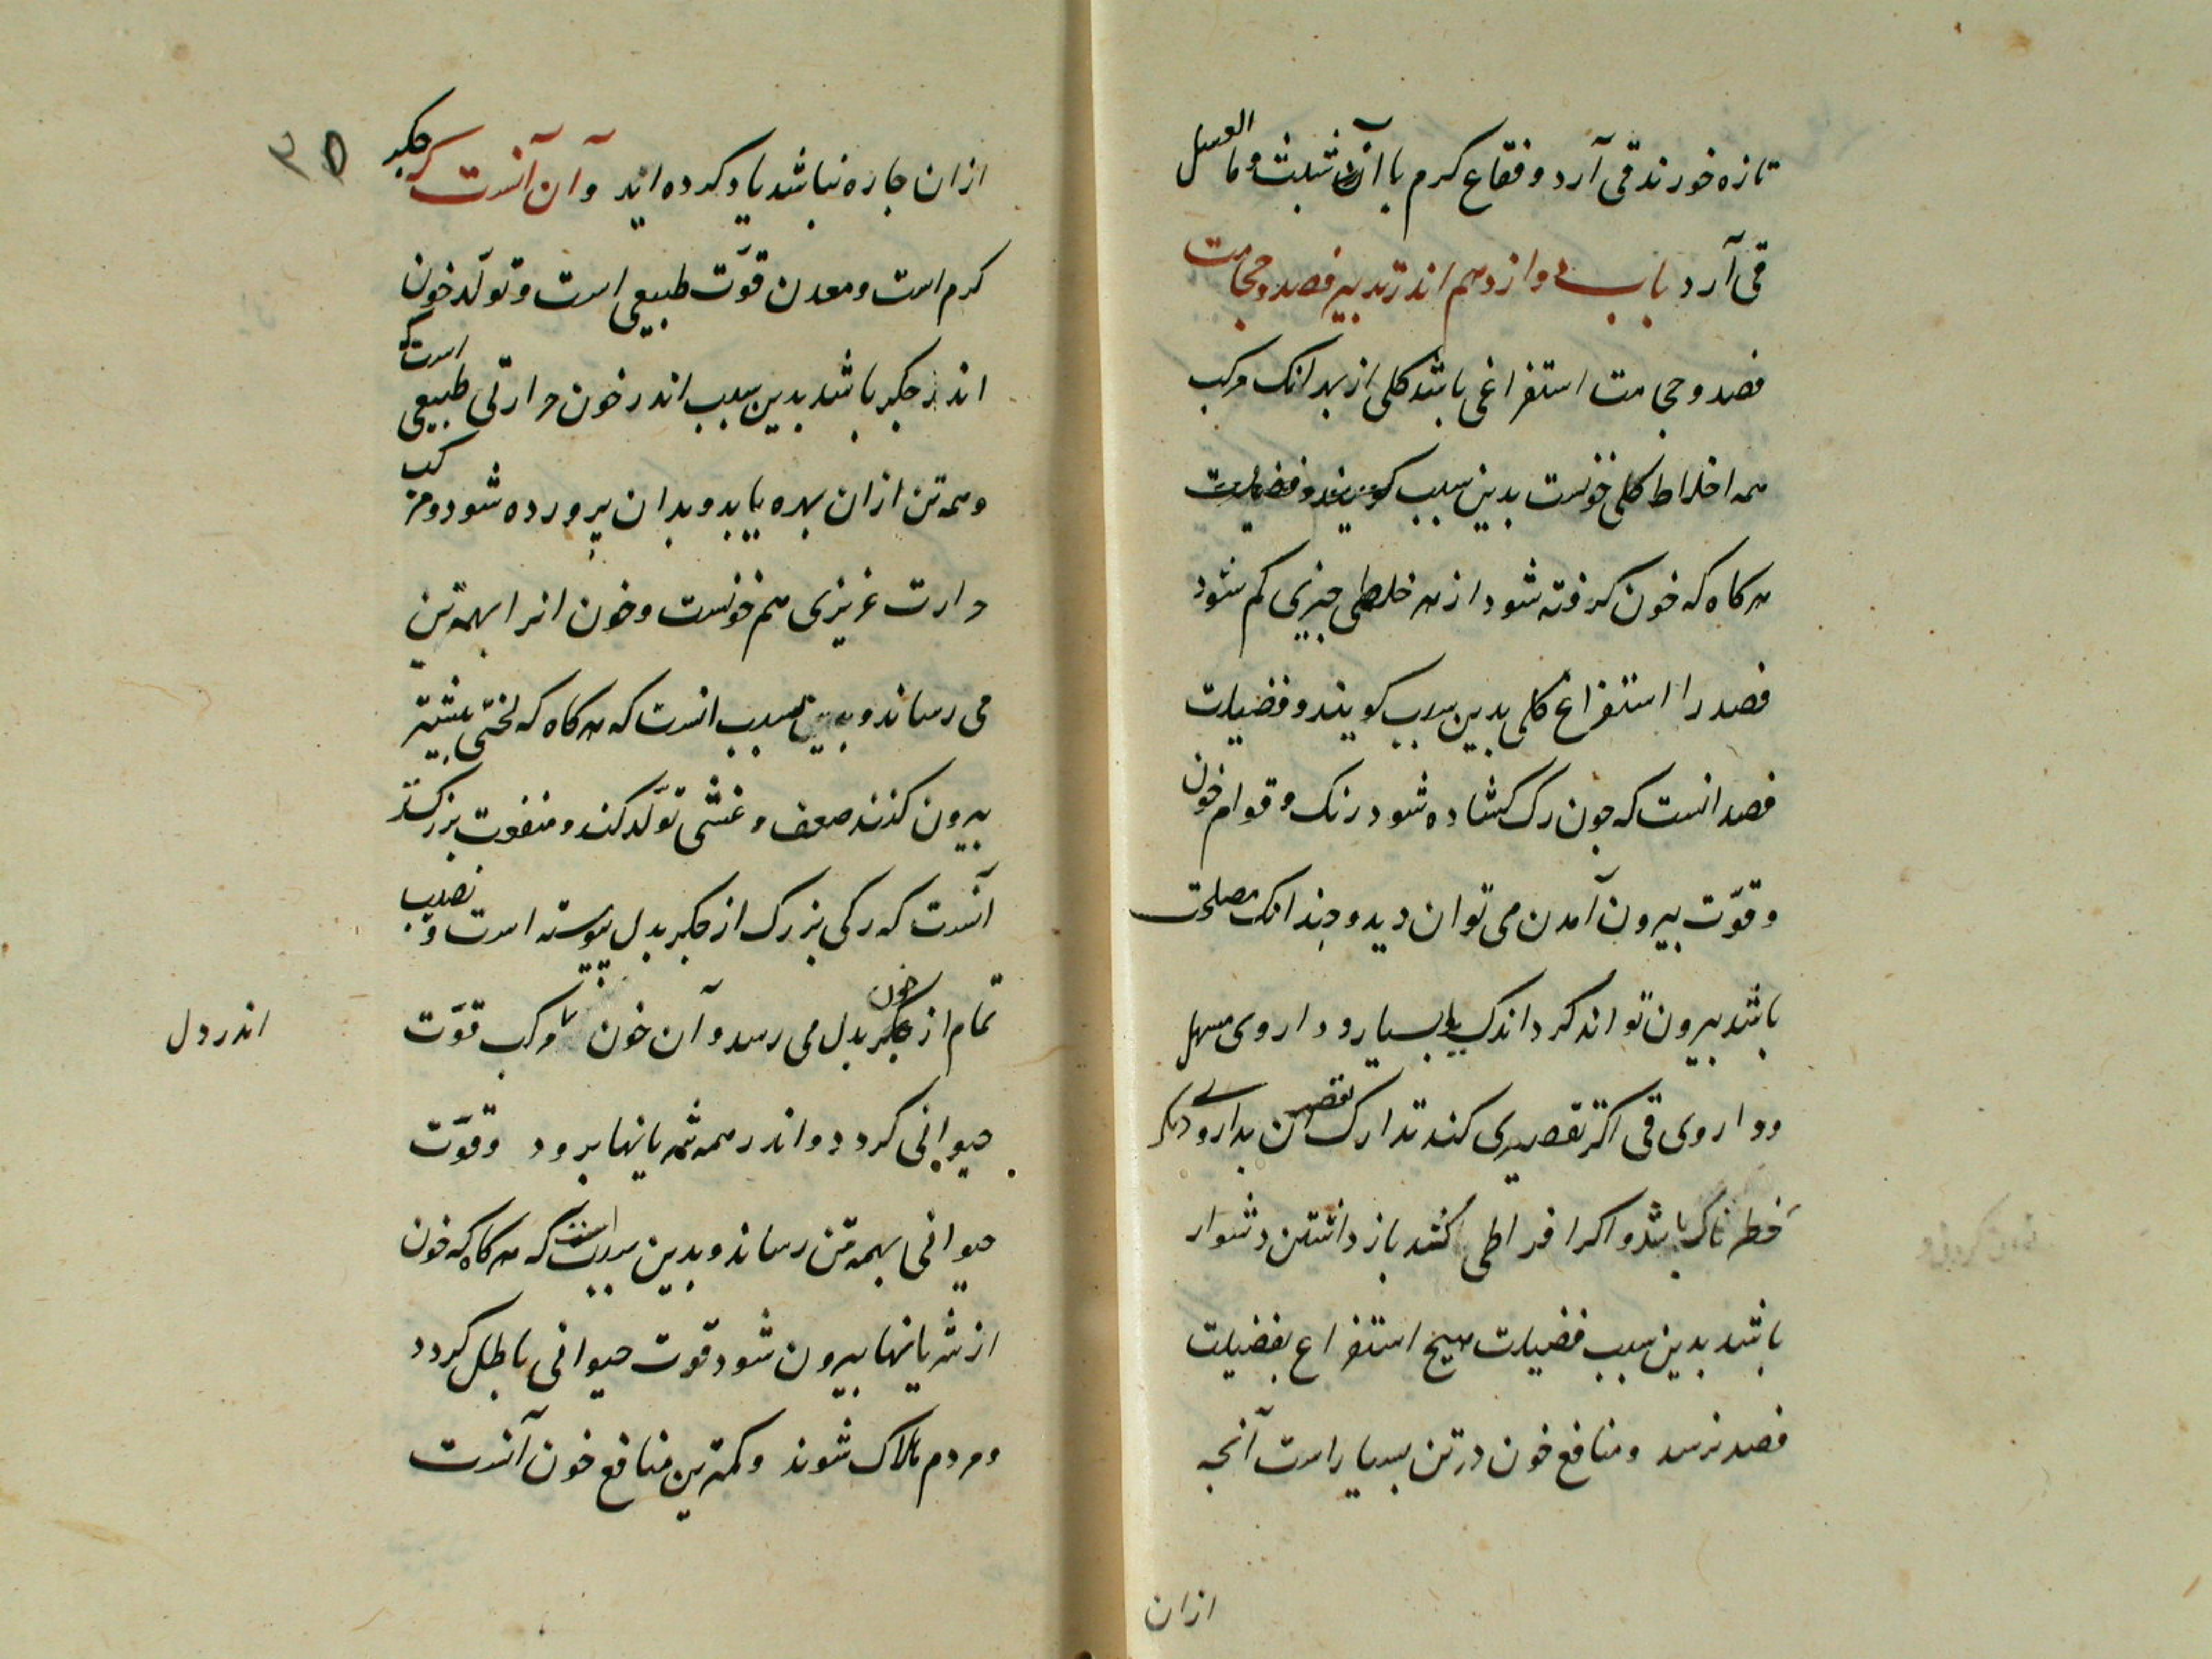 تازه خورند قی آرد و فقاع کرم با آن شبث و ما العسل
قی آرد باب دوازدهم اندر تدبیر فصد و حجامت
فصد و حجامت استفراغی باشد کلی از بهر انک مرکب
همه اخلاط کلی خونست بدین سبب کویند و فضیلت
هرکاه که خون کرفته شود از هر خلطی جیزی کم شود
فصد را استفراغ کلی بدین سبب کویند و فضیلت
فصد انست که جون رک کشاده شود رنک و قوام خون
و قوّت بیرون آمدن می توان دید و جندانک مصلحت
باشد بیرون تواند کرد اندک یا بسیار و داروی مسهل
و داروی قی اکر تقصیری کند تدارک تقصیر آن بداروی دیکر
خطرناک باشد و اکر افراطی کند باز داشتن دشوار
باشد بدین سبب فضیلت هیچ استفراغ بفضیلت
فصد نرسد و منافع خون در تن بسیار است آنجه
ازان
۳۵
ازان جاره نباشد یاد کرده اید و آن آنست که جکر
کرم است و معدن قوّت طبیعی است و تولّد خون
اندر جکر باشد بدین سبب اندر خون حرارتی طبیعی است که
و همه تن ازان بهره یابد و بدان پرورده شود و مرکب
حرارت غریزی هم خونست و خون انرا بهمه تن
می رساند و بدین سبب انست که هرکاه که لختی بیشتر
بیرون کنند ضعف و غشی تولّد کند و منفعت بزرکتر
آنست که رکی بزرک از جکر بدل پیوسته است و نصیب
تمام از جکر خون بدل می رسد و آن خون مرکب قوّت
اندر دل
حیوانی کردد و اندر همه شریانها برود و قوّت
حیوانی بهمه تن رساند و بدین سبب است که هرکاه که خون
از شریانها بیرون شود قوت حیوانی باطل کردد
و مردم هلاک شوند و کمترین منافع خون آنست